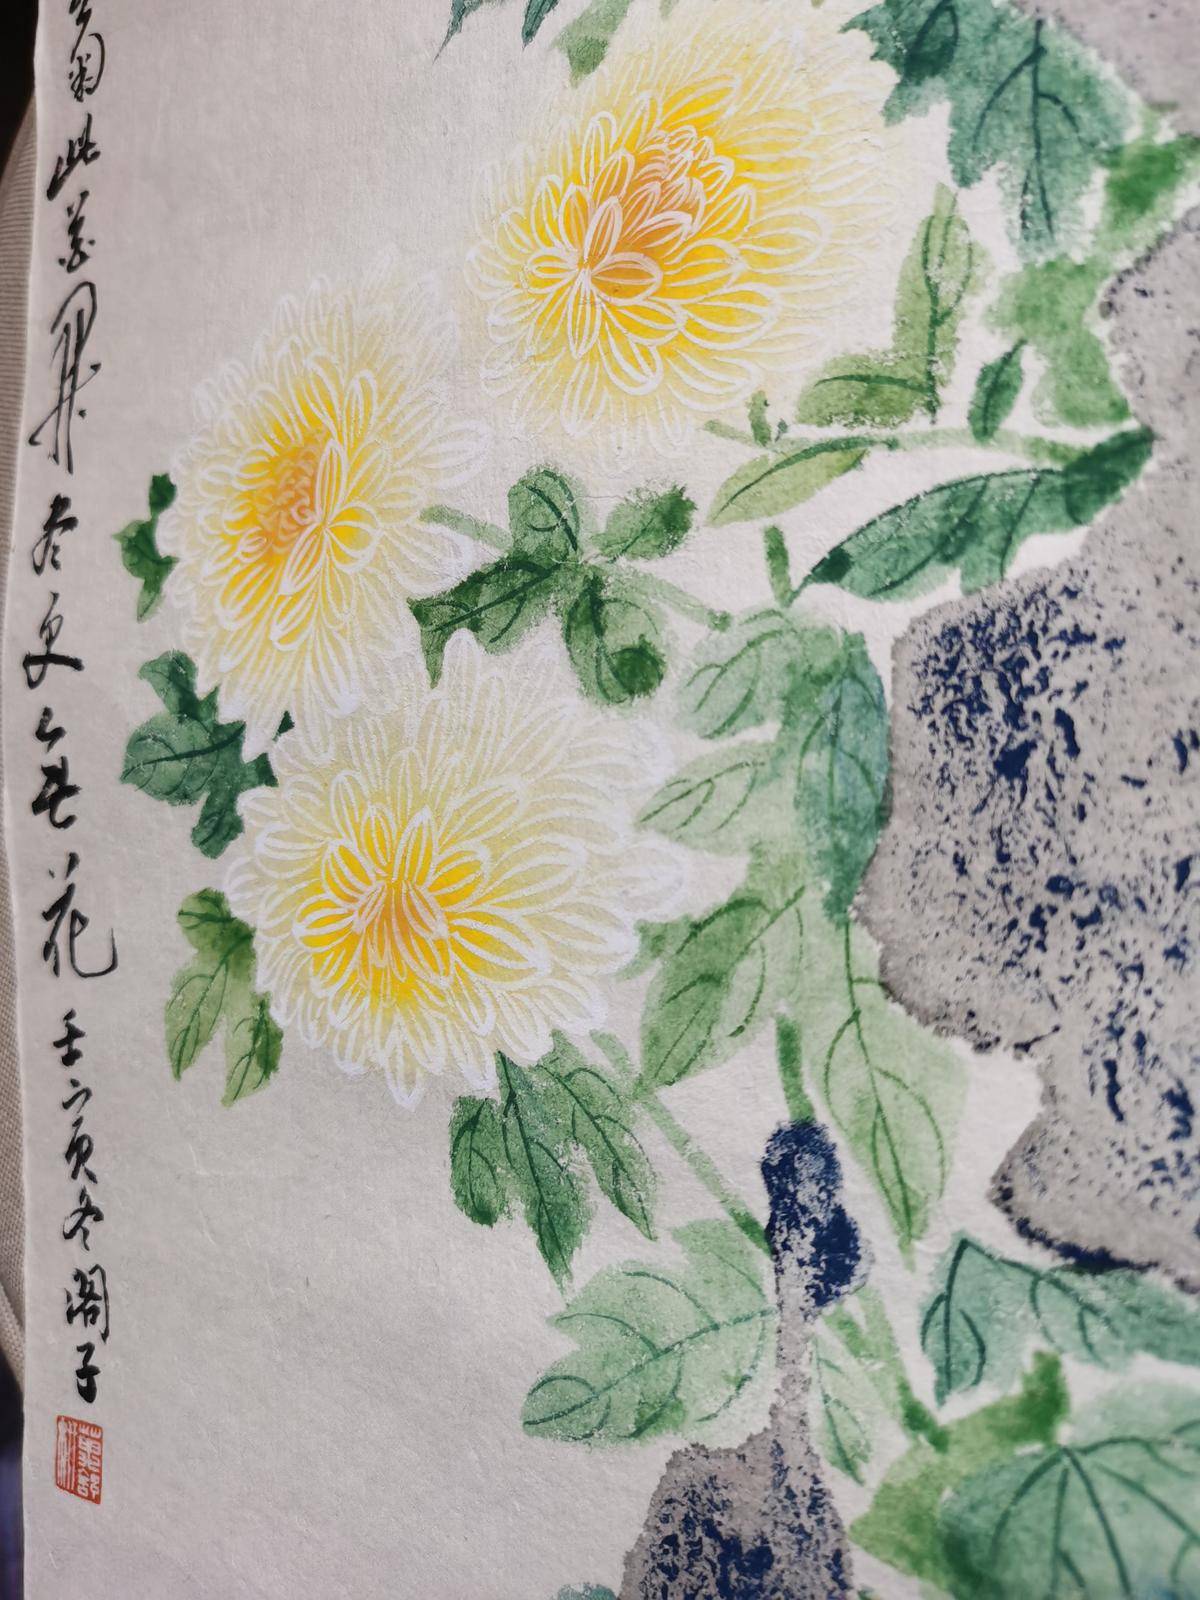 菊此花開尽更無花壬寅冬阁子